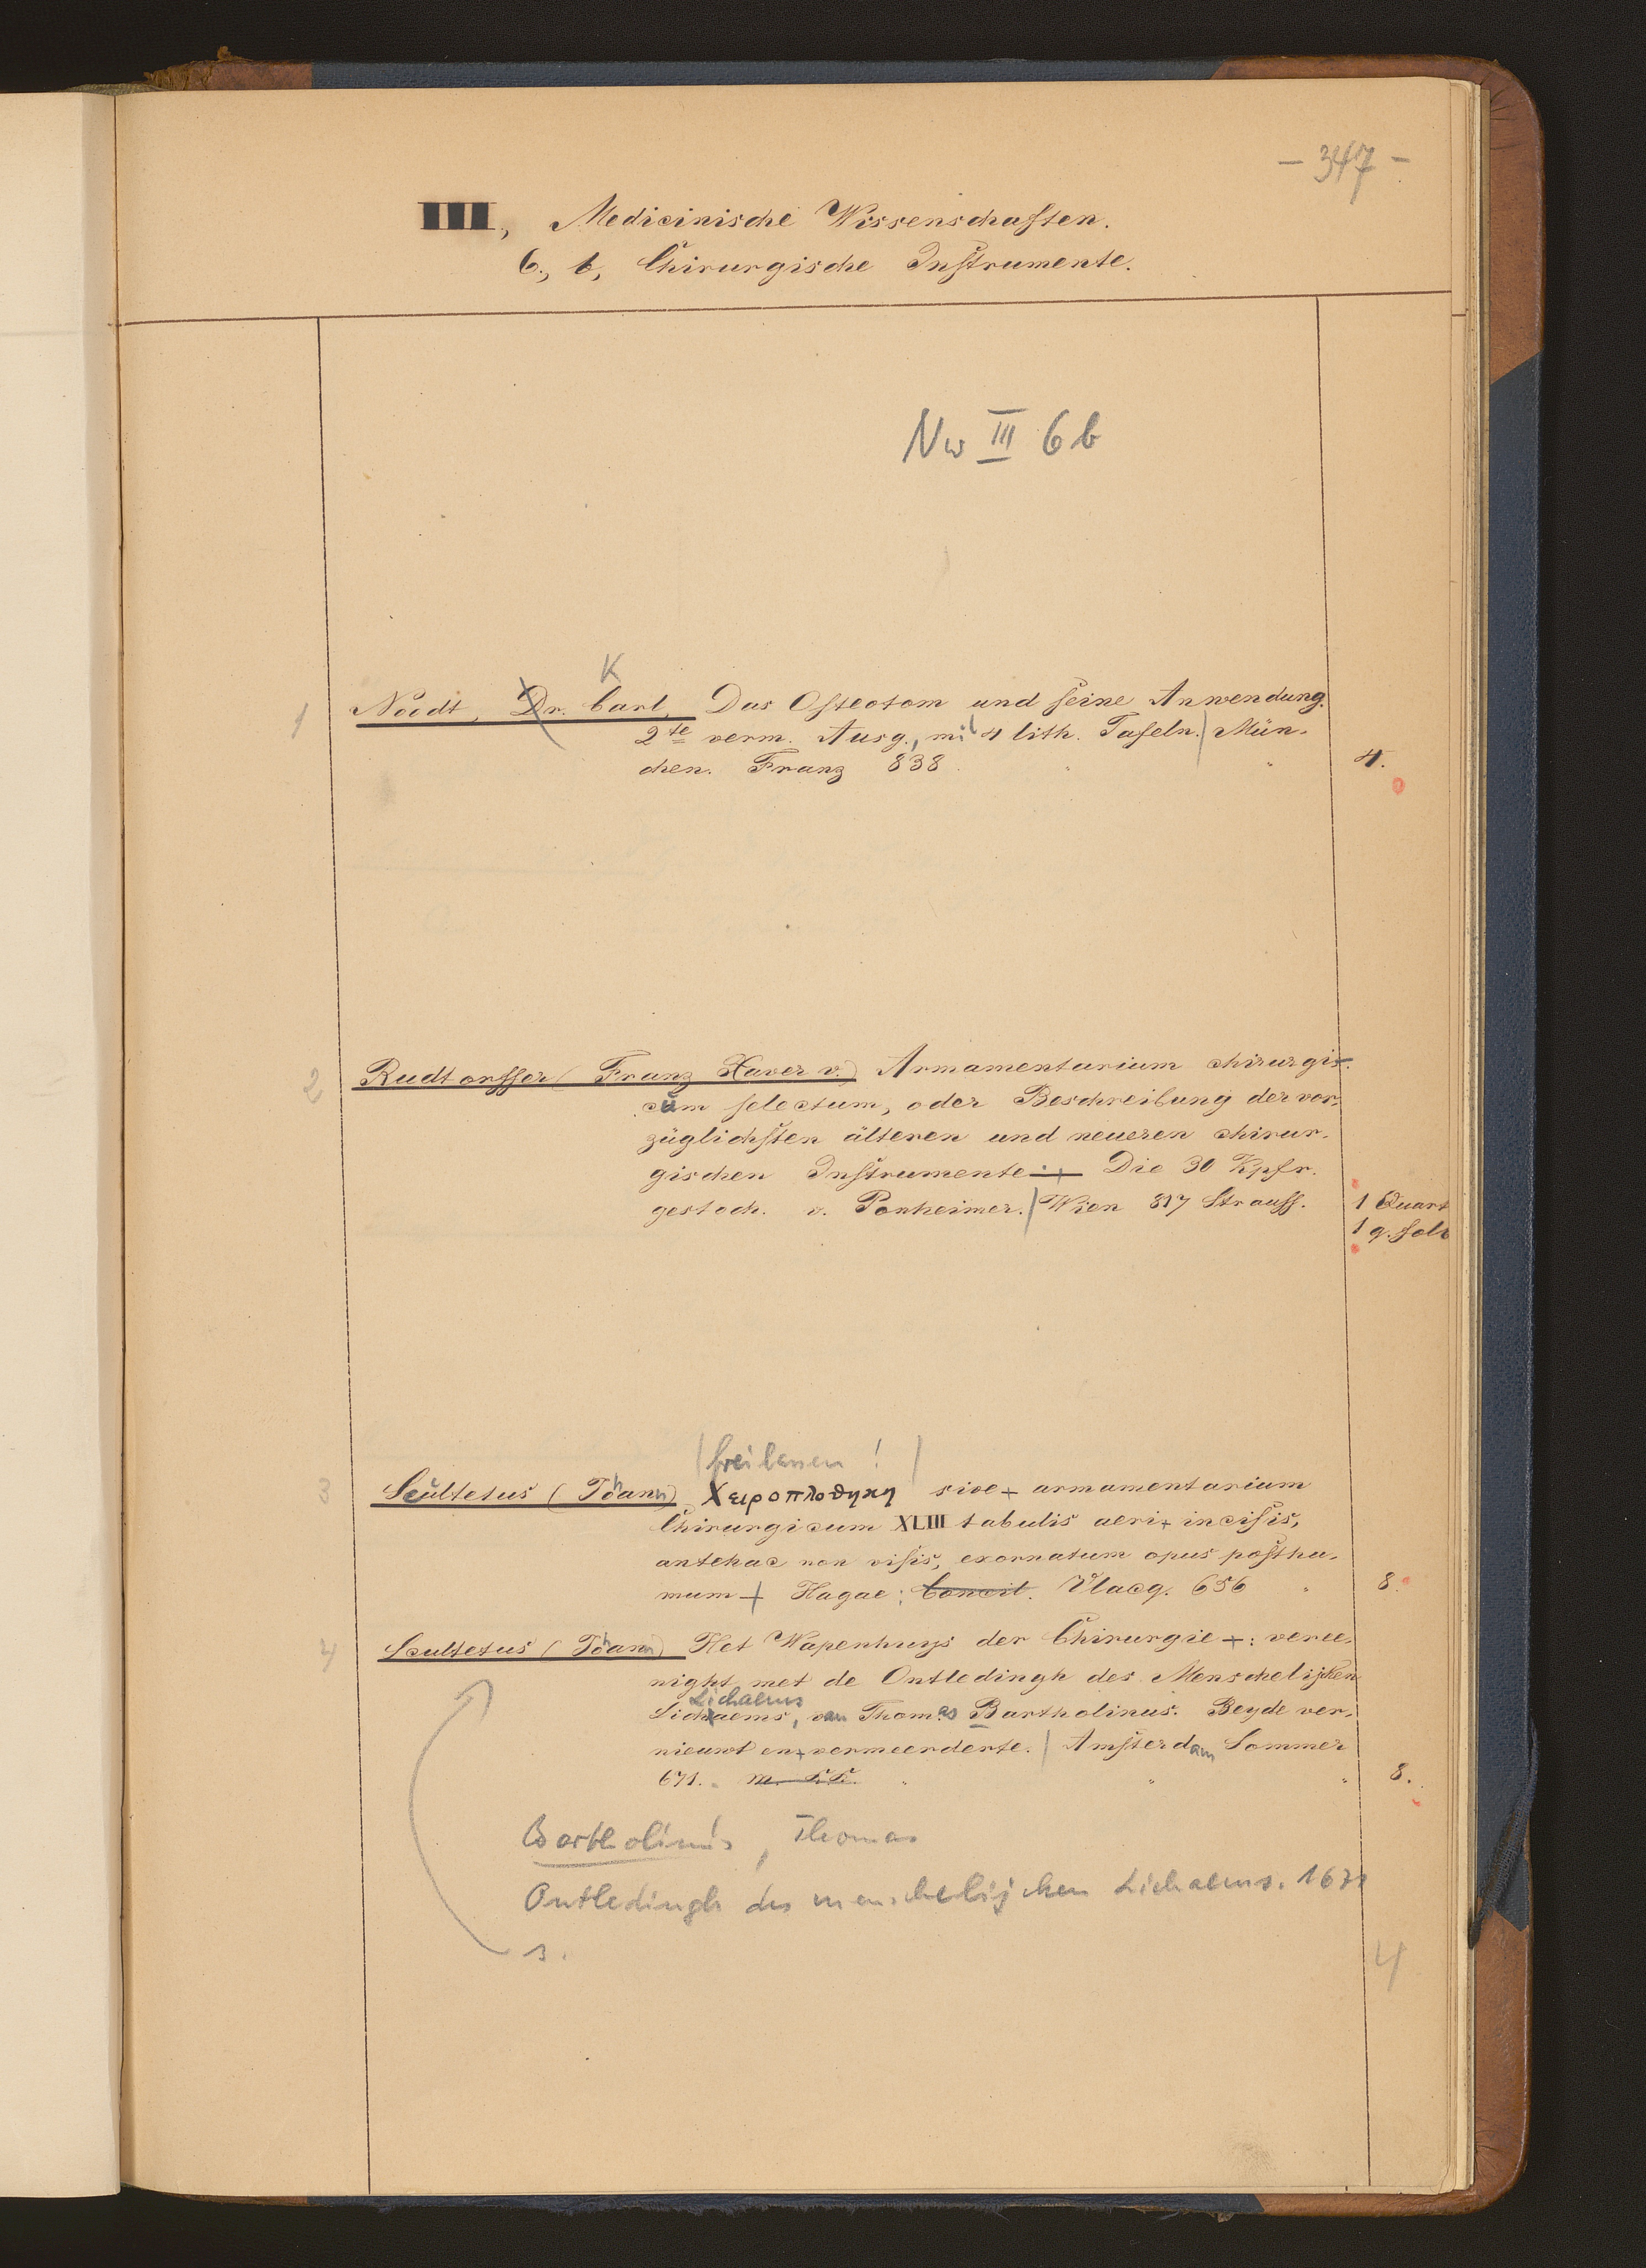 - 347 -
III, Medicinische Wissenschaften.
6., b, Chirurgische Instrumente.
Nw III 6 b
K
1 Nodt, Dr. Carl, Das Osteotom und seine Anwendung.
2te verm. Ausg., mit 4 lith. Tafeln. | Mün-
chen. Franz 838 4.
2 Rudtorffer (Franz Xaver v.) Armamentarium chirurgi-
cum selectum, oder Beschreibung der vor-
züglichsten älteren und neueren chirur-
gischen Instrumente. Die 30 Kpfr.
gestoch. v. Ponheimer. | Wien 817 Strauss. 1 Quart
1 q. fol
(freilassen! )
3 Scultetus (Johann) Χειροπλοθηκη sive + armamentarium
Chirurgicum XLIII tabulis aeri + incisis,
antehac non visis, exornatum opus posthu-
mum + Hagae; Concit. Vlacq. 656 8.
4 Scultetus (Johann) Het Wapenhuys der Chirurgie +: veree-
night met de Ontledingh des Menschelijcken
Lichaems
Lichaems, van Thomas Bartholinus. Beyde ver-
nieuwt en + vermeerderte. | Amsterdam Sommer
671. m. K.K. 8.
Bartholinus, Thomas
Ontledingh des menschelijcken Lichaems. 1671
s. 4